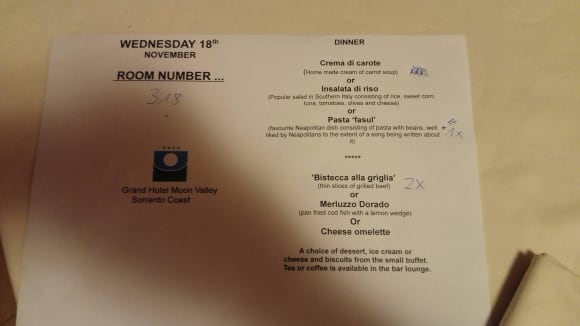 WEDNESDAY 18th
NOVEMBER
ROOM NUMBER ...
318
Grand Hotel Moon Valley
Sorrento Coast
DINNER
Crema di carote
(Home made cream of carrot soup)
or
Insalata di riso
(Popular salad in Southern Italy consisting of rice, sweet corn,
tuna, tomatoes, olives and cheese)
or
Pasta 'fasul'
(favourite Neapolitan dish consisting of pasta with beans, well
liked by Neapolitans to the extent of a song being written about
it)
1x
*****
'Bistecca alla griglia'
(thin slices of grilled beef)
2x
or
Merluzzo Dorado
(pan fried cod fish with a lemon wedge)
Or
Cheese omelette
A choice of dessert, ice cream or
cheese and biscuits from the small buffet.
Tea or coffee is available in the bar lounge.